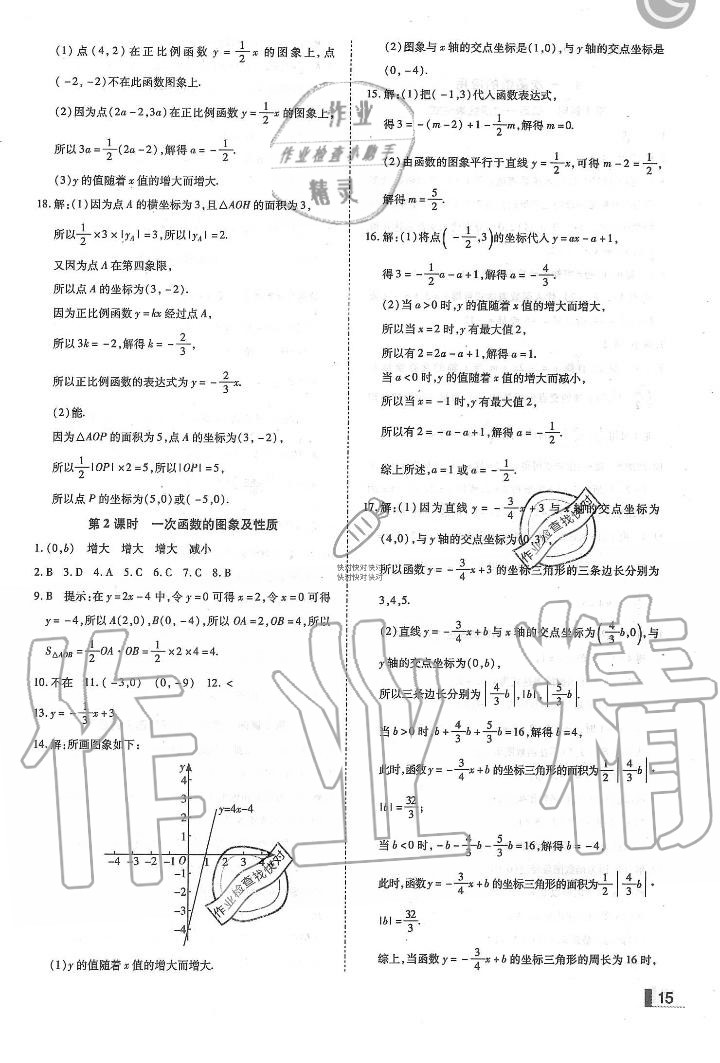 (1)点(4,2)在正比例函数 y=1/2x 的图象上,点
(-2,-2)不在此函数图象上.
(2)因为点(2a-2,3a)在正比例函数y=1/2x的图象上,
所以3a=1/2(2a-2),解得a=-1/2.
(3)y的值随着x值的增大而增大.
18.解:(1)因为点A的横坐标为3,且△AOH的面积为3,
所以1/2×3×|yA|=3,所以|yA|=2.
又因为点A在第四象限,
所以点A的坐标为(3,-2).
因为正比例函数y=kx经过点A,
所以3k=-2,解得k=-2/3,
所以正比例函数的表达式为y=-2/3x.
(2)能.
因为△AOP的面积为5,点A的坐标为(3,-2),
所以1/2|OP|×2=5,所以|OP|=5,
所以点P的坐标为(5,0)或(-5,0).
第2课时 一次函数的图象及性质
1.(0,b) 增大 增大 增大 减小
2.B 3.D 4.A 5.C 6.C 7.C 8.B
9.B 提示:在y=2x-4中,令y=0可得x=2,令x=0可得
y=-4,所以A(2,0),B(0,-4),所以OA=2,OB=4,所以
S△AOB=1/2OA·OB=1/2×2×4=4.
10.不在 11.(-3,0) (0,-9) 12.<
13.y=-1/3x+3
14.解:所画图象如下:
y
4
3
2
1
y=4x-4
-4 -3 -2 -1 0 1 2 3 4
-1
-2
-3
-4
(1)y的值随着x值的增大而增大.
(2)图象与x轴的交点坐标是(1,0),与y轴的交点坐标是
(0,-4).
15.解:(1)把(-1,3)代入函数表达式,
得3=-(m-2)+1-1/2m,解得m=0.
(2)由函数的图象平行于直线y=1/2x,可得m-2=1/2,
解得m=5/2.
16.解:(1)将点(-1/2,3)的坐标代入y=ax-a+1,
得3=-1/2a-a+1,解得a=-4/3.
(2)当a>0时,y的值随着x值的增大而增大,
所以当x=2时,y有最大值2,
所以有2=2a-a+1,解得a=1.
当a<0时,y的值随着x值的增大而减小,
所以当x=-1时,y有最大值2,
所以有2=-a-a+1,解得a=-1/2.
综上所述,a=1或a=-1/2.
17.解:(1)因为直线y=-3/4x+3与x轴的交点坐标为
(4,0),与y轴的交点坐标为(0,3),
所以函数y=-3/4x+3的坐标三角形的三条边长分别为
3,4,5.
(2)直线y=-3/4x+b与x轴的交点坐标为(4/3b,0),与
y轴的交点坐标为(0,b),
所以三条边长分别为|4/3b|,|b|,|5/3b|.
当b>0时,b+4/3b+5/3b=16,解得b=4,
此时,函数y=-3/4x+b的坐标三角形的面积为1/2|4/3b|·
|b|=32/3;
当b<0时,-b-4/3b-5/3b=16,解得b=-4,
此时,函数y=-3/4x+b的坐标三角形的面积为1/2|4/3b|·
|b|=32/3.
综上,当函数y=-3/4x+b的坐标三角形的周长为16时,
15
作业
作业检查小助手
精灵
快对快对快对
快对快对快对
作业检查找快对
作业检查找快对
作业精